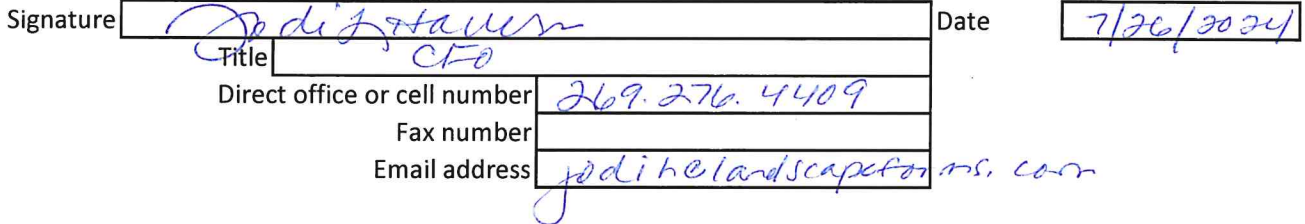 Signature Jodi L Haven Date 7/26/2024
Title CFO
Direct office or cell number 269.276.4409
Fax number
Email address jodih@landscapeforms.com